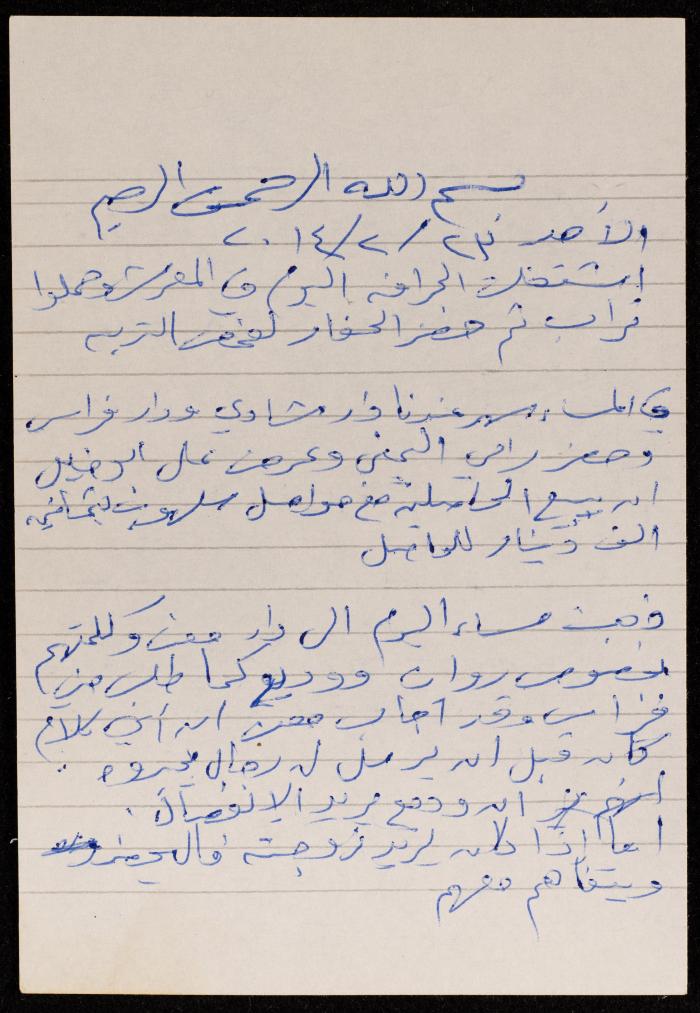 بسم الله الرحمن الرحيم
الأحد ٢٣/٢/٢٠١٤
اشتغلت الجرافه اليوم في المفرش وحملوا
تراب ثم حضر الحفار لفحص التربه
في المساء سهر عندنا دار شادي ودار فراس
وحضر رامي اليمني وعرض على ابو خليل
ان يبيع الحواصليه مع حواصل سلهوب بثمانيه
الف دينار للحاصل
ذهبت مساء اليوم الى دار معن وكلمتهم
بخصوص روان ووديع كما طلب مني
فراس وقد اجاب معن ان أي كلام
كان قبل ان يرسل لي رجال يخبروه
ان وديع يريد الانفصال.
اما إذا كان يريد زوجته فاليحضر
ويتفاهم معهم